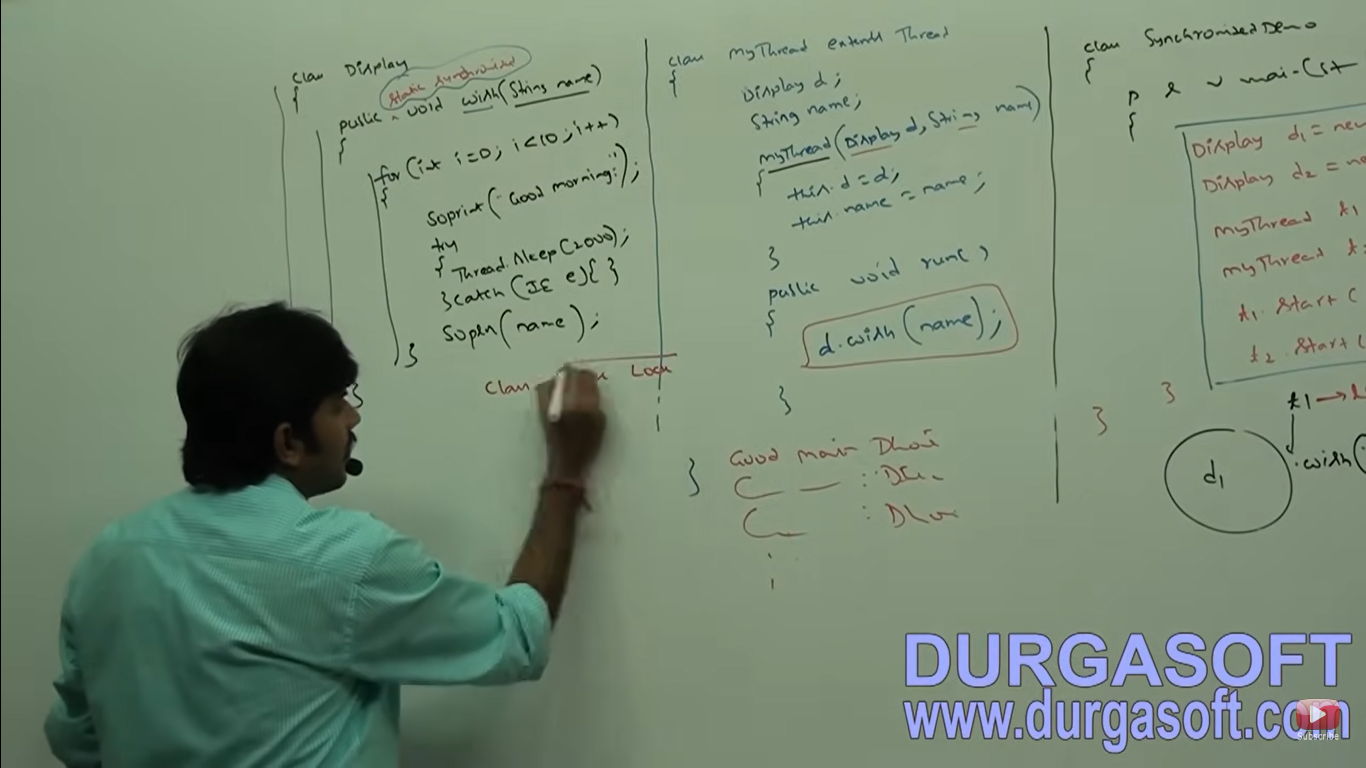 class Display
{
static synchronized
public void wish(String name)
{
for(int i=0; i<10; i++)
{
Soprint("Good morning:");
try
{ Thread.sleep(2000);
}catch(IE e){ }
Sopln(name);
}
}
class Lock
class MyThread extends Thread
{
Display d;
String name;
MyThread(Display d, String name)
{
this.d = d;
this.name = name;
}
public void run()
{
d.wish(name);
}
}
Good
class SynchronizedDemo
{
p s v main(St
{
Display d1 = new
Display d2 = ne
MyThread t1
MyThread t
t1.start(
t2.start(
}
}
t1 →
d1
.wish(
DURGASOFT
www.durgasoft.com
Subscribe